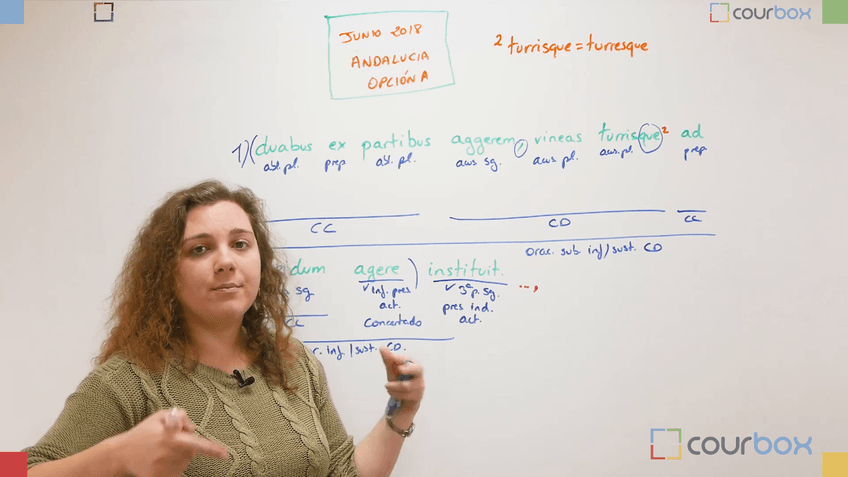 courbox
JUNIO 2018
ANDALUCIA
OPCIÓN A
2 turrisque = turresque
1) (duabus ex partibus aggerem, vineas turrisque 2 ad
abl. pl. prep abl. pl. acus sg. acus pl. acus. pl. prep
CC CD CC
orac. sub. inf / sust. CD
dum agere) instituit. ...,
sg √ inf. pres √ 3ª p. sg.
act. pres ind.
CC concertado act.
inf. / sust. CD.
courbox